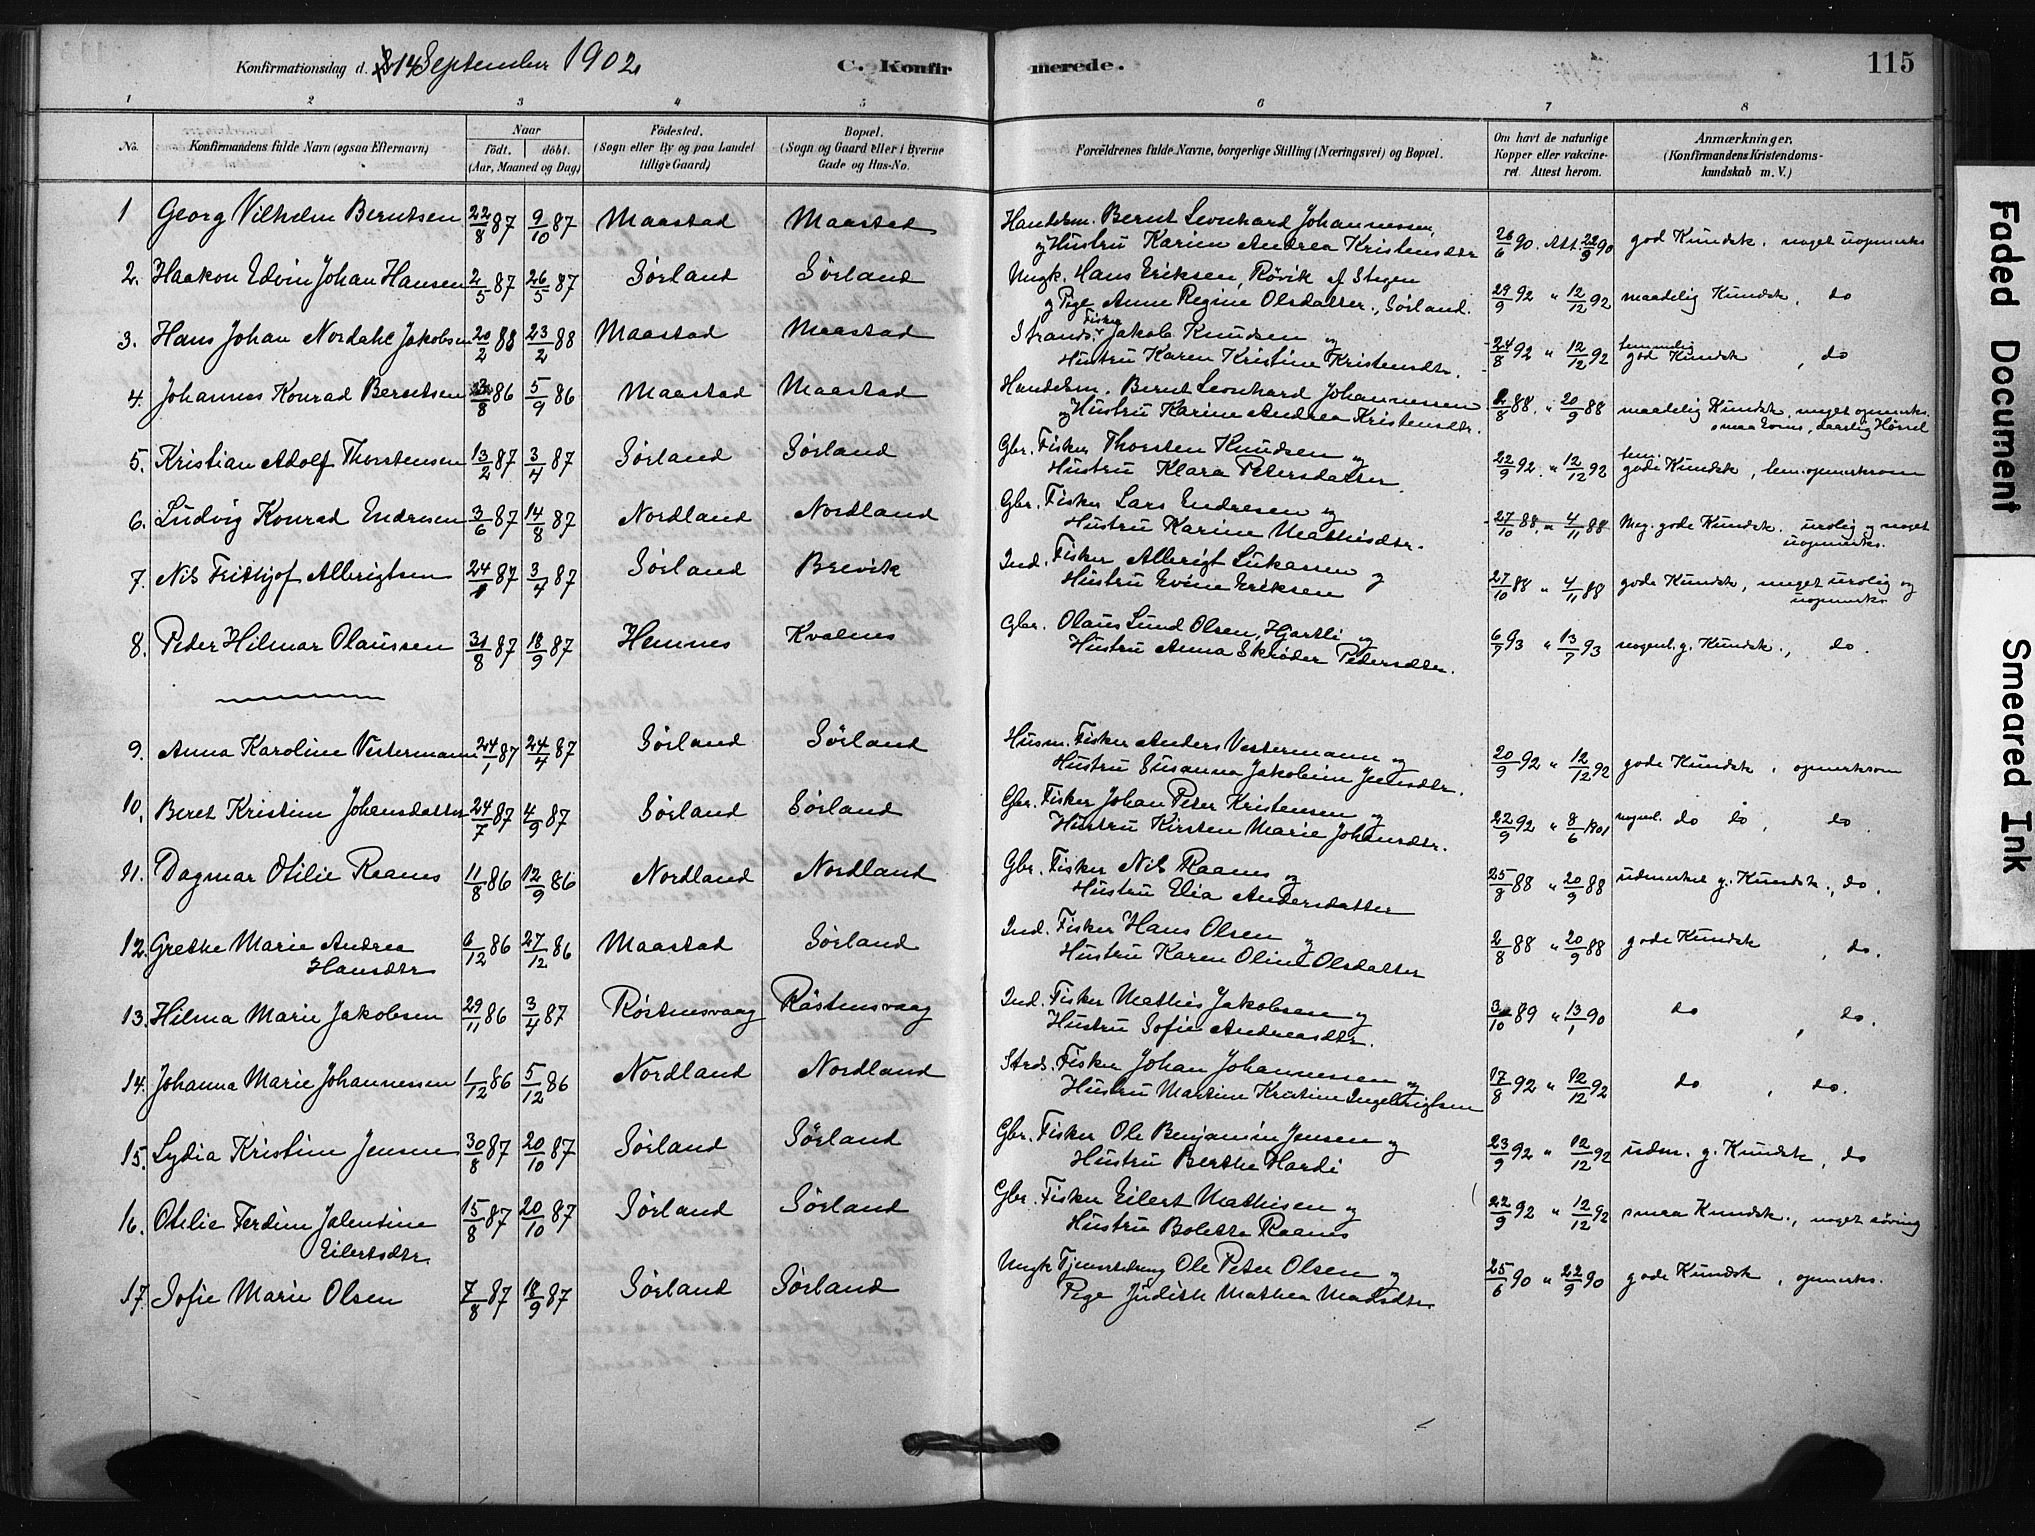 Konfirmationsdag d. 14 September 1902. C. Konfirmerede. 115
1 2 3 4 5 6 7 8
No. Konfirmandens fulde Navn (ogsaa Efternavn) Naar født. døbt. (Aar, Maaned og Dag) Fødested. (Sogn eller By og paa Landet tillige Gaard) Bopæl. (Sogn og Gaard eller i Byerne Gade og Hus-No. Forældrenes fulde Navne, borgerlige Stilling (Næringsvei) og Bopæl. Om havt de naturlige Kopper eller vakcineret. Attest herom. Anmærkninger. (Konfirmandens Kristendomskundskab m. V.)
1 Georg Vilhelm Berntsen 22/8 87 9/10 87 Maastad Maastad Handelsm. Bernt Leonhard Johannessen
og Hustru Karine Andrea Kristensdtr 26/6 90. Att. 22/9 90 god Kundsk. noget uopmerks
2. Haakon Edvin Johan Hansen 2/5 87 26/5 87 Sörland Sörland Ungk. Hans Eriksen, Rövik af Stegen
og Pige Anne Regine Olsdatter, Sörland. 29/9 92 " 12/12 92 maadelig Kundsk, do
3. Hans Johan Nordahl Jakobsen 20/2 88 23/2 88 Maastad Maastad Strands. Fisker Jakob Knudsen og
Hustru Karen Kristine Kristensdtr. 24/8 92 " 12/12 92 temmelig god Kundsk, do
4. Johannes Konrad Berntsen 86 5/9 86 Maastad Maastad Handelsm. Bernt Leonhard Johannessen
og Hustru Karine Andrea Kristensdtr. 88. " 20/9 88 maadelig Kundsk, noget opmerks.
smaa Evner, daarlig Hørsel
5. Kristian Adolf Thorstensen 13/2 87 3/4 87 Sörland Sörland Gbr. Fisker Thorsten Knudsen og
Hustru Klara Petersdatter. 22/9 92. " 12/12 92 tem. gode Kundsk, tem. opmerksom
6. Ludvig Konrad Endresen 3/6 87 14/8 87 Nordland Nordland Gbr. Fisker Lars Endresen og
Hustru Karine Mathisdtr. 27/10 88. " 4/11 88 Meg. gode Kundsk. urolig og noget
uopmerks.
7. Nils Frithjof Albrigtsen 24/1 87 3/4 87 Sörland Brevik Ind. Fisker Albrigt Lukassen og
Hustru Evine Eriksen 27/10 88 " 4/11 88 gode Kundsk, noget urolig og
uopmerks
8. Peder Hilmar Olaussen 31/8 87 18/9 87 Hemnes Kvalnes Gbr. Olaus Lund Olsen, Hjartli og
Hustru Anna Skrøder Pedersdtr. 6/7 93 " 13/7 93 nogenl. g. Kundsk., do.
9. Anna Karoline Vestermann 24/1 87 24/4 87 Sörland Sörland Husm. Fisker Anders Vestermann og
Hustru Susanna Jakobine Jensdtr. 20/9 92 " 12/12 92 gode Kundsk, opmerksom
10. Beret Kristine Johansdatter 24/7 87 4/9 87 Sörland Sörland Gbr. Fisker Johan Peter Kristensen og
Hustru Kirsten Marie Johansdtr. 22/9 92 " 8/6 1901 nogenl. do do, do.
11. Dagmar Otilie Raanes 11/8 86 12/9 86 Nordland Nordland Gbr. Fisker Nils Raanes og
Hustru Elia Andersdatter 25/8 88 " 20/9 88 udmerket g. Kundsk., do.
12. Grethe Marie Andrea
Hansdtr 6/12 86 27/12 86 Maastad Sörland Ind. Fisker Hans Olsen og
Hustru Karen Oline Olsdatter 2/8 88 " 20/9 88 gode Kundsk, do.
13. Hilma Marie Jakobsen 29/11 86 3/4 87 Röstnesvaag Röstnesvaag Ind. Fisker Mathis Jakobsen og
Hustru Sofie Andreasdtr. 3/10 89 " 13/1 90 do, do.
14. Johanna Marie Johannessen 1/12 86 5/12 86 Nordland Nordland Strds. Fisker Johan Johannessen og
Hustru Martine Kristine Ingebrigtsen 17/8 92 " 12/12 92 do, do.
15. Lydia Kristine Jensen 30/8 87 20/10 87 Sörland Sörland Gbr. Fisker Ole Benjamin Jensen og
Hustru Berthe Hardi 23/9 92 " 12/12 92 udm. g. Kundsk, do
16. Otelie Ferdine Jalentine
Eilertsdtr 15/8 87 20/10 87 Sörland Sörland Gbr. Fisker Eilert Mathisen og
Hustru Bolette Raanes 22/9 92 " 12/12 92 smaa Kundsk., noget döving
17. Sofie Marie Olsen 7/8 87 18/9 87 Sörland Sörland Ungk Tjenestedreng Ole Peter Olsen og
Pige Judith Mathea Madsdtr 25/6 90 " 22/9 90 gode Kundsk, opmerks.
Faded Document
Smeared Ink